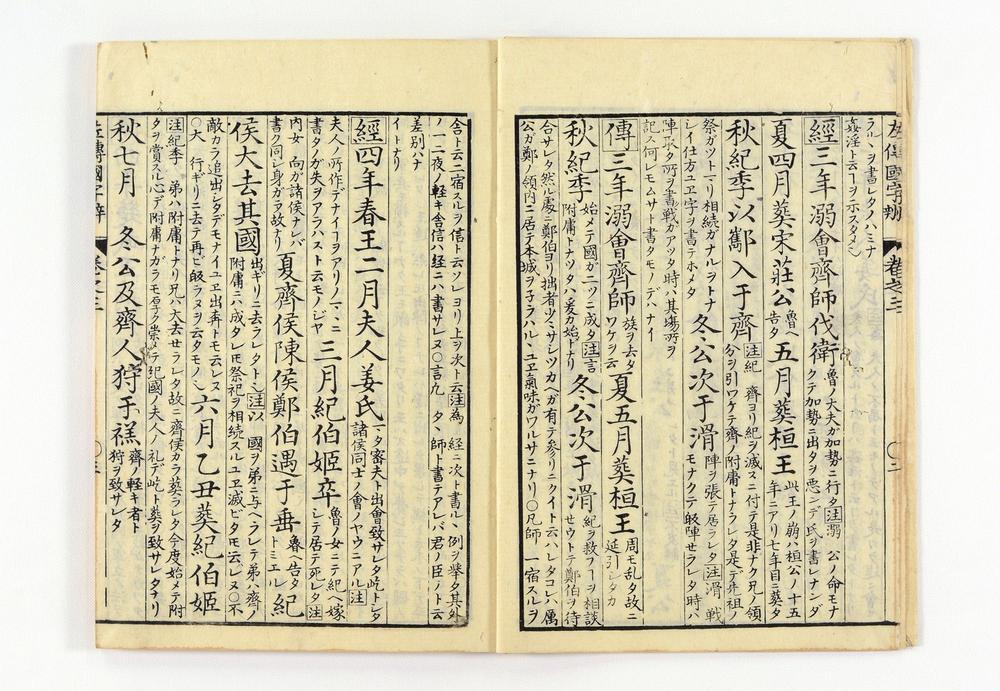 卷之二
ラルヽヲ書レタノハミナ
姦淫ト云フヿヲ示スタメ乄
經三年溺會齊師伐衛
魯ノ大夫ガ加勢ニ行タ注溺 公ノ命モナ
クテ加勢ニ出タヲ悪ンデ氏ヲ書レナンダ
夏四月葬宋莊公
魯へ
告タ
五月葬桓王
此王ノ崩ハ桓公ノ十五
年ニアリ七年目ニ葬タ
秋紀季以酅入于齊
注紀 齊ヨリ紀ヲ滅スニ付テ是非ナク兄ノ領
分ヲ引ワケテ齊ノ附庸トナラレタ是デ先祖ノ
祭ガツトマリ相続ガナルヲトナ
シイ仕方ユヱ字ヲ書テホメタ
冬公次于滑
陣ヲ張テ居ラレタ注滑 戦
モナクテ皈陣セラレタ時ハ
陣取タ所ヲ書戦ガアツタ時ハ其場所ヲ
記ス何レモムサト書タモノデハナイ
傳三年溺會齊師
族ヲ去タ
ワケヲ云
夏五月葬桓王
周モ乱タ故ニ
延引シタカ
秋紀季
始メテ國ガ二ツニ成タ注言
附庸トナツタハ爰カ始トナリ
冬公次于滑
紀ヲ救フヿヲ相談
セウトテ鄭伯ヲ待
合サレタ然ル處ニ鄭伯ヨリ拙者少〻サシツカヘガ有テ参リニクイト云ハレタコレハ厲
公ガ鄭ノ領内ニ居テ本城ヲ子ラハルヽユヱ氣味ガワルサニナリ〇凡師 一宿スルヲ
舎ト云二宿スルヲ信ト云ソレヨリ上ヲ次ト云注為 経ニ次ト書ルヽ例ヲ挙タ其外
ノ一二夜ノ軽キ舎信ハ経ニハ書サレヌ〇言凡
師ト書テアレバ君ノ臣ノト云
差別ハナ
イトナリ
經四年春王二月夫人姜氏
夫人ノ所作デナイヿヲアリノマヽニ
書タノガ失ヲアラハスト云モノジヤ
三月紀伯姬卒
魯ノ女ニテ紀へ嫁
シテ居テ死レタ注
内女
書ク同シ身ガラ故ナリ
夏齊侯陳侯鄭伯遇于垂
魯へ告タ
トミエル
紀
侯大去其國
出ギリニ去ラレタトシ注以 國ヲ弟ニ与ヘラレテ弟ハ齊ノ
附庸ニハ成タレ𪜈祭祀ヲ相続スルユヱ滅ビタモ云レヌ〇不
敵カラ追出シタデモナイユヱ出奔トモ云レヌ
〇大 行ギリニ去テ再ビ皈ラヌヲ云タモノ乄
六月乙丑齊侯葬紀伯姬
注紀季 弟ハ附庸トナリ兄ハ大去セラレタ故ニ齊侯カラ葬ラレタ今度始メテ附
秋七月 冬公及齊人狩于禚
齊ノ軽キ者ト
狩ヲ致サレタ